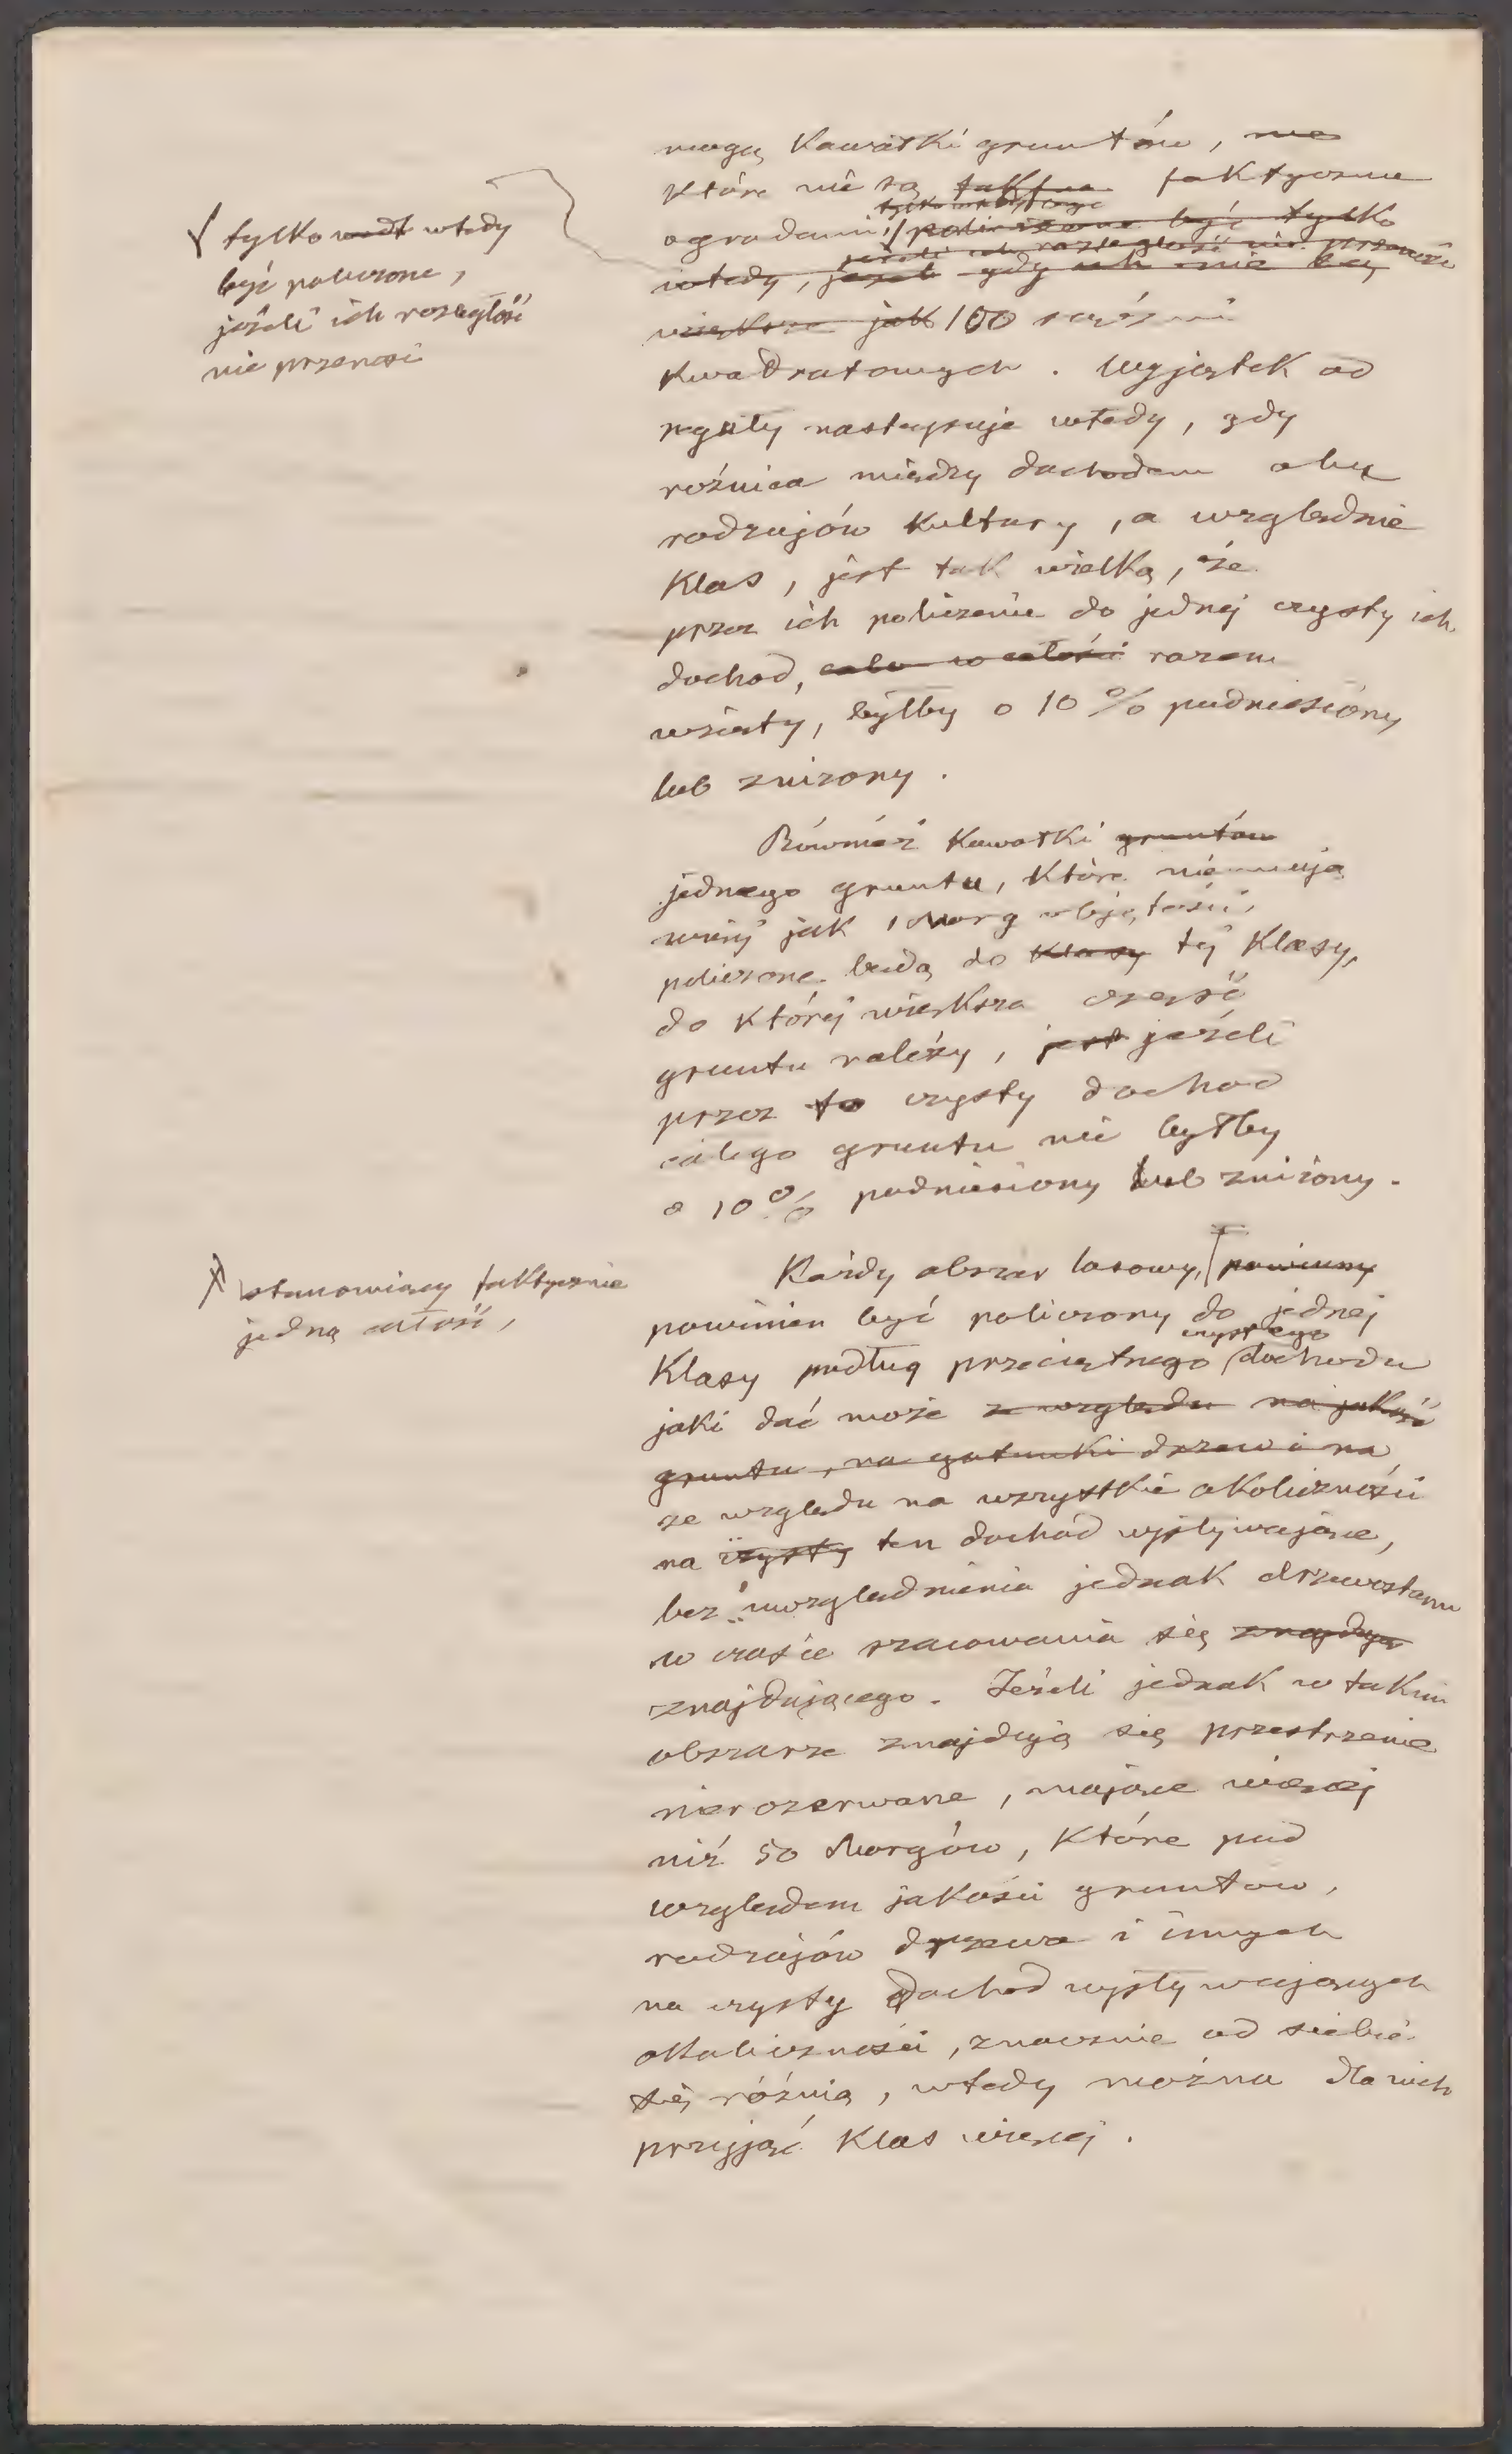 mogą Kawałki gruntów, nie
które nie są faktycznie
ogrodami, policzone być tylko
wtedy, jeżeli gdy ich nie są
jeżeli ich rozległość nie przenosi
większe jak 100 sążni
Kwadratowych. Wyjątek od
reguły następuje wtedy, gdy
rożnica między dochodem obu
rodzajów Kultury, a względnie
Klas, jest tak wielką, że
przez ich policzenie do jednej czysty ich
dochod, w całości razem
wzięty, byłby o 10 % podniesiony
lub zniżony.
Również Kawałki gruntów
jednego gruntu, Które nie mają
więcej jak 1 Morg objętości,
policzone będą do Klasy tej Klasy,
do Której większa część
gruntu należy, jest jeżeli
przez to czysty dochod
całego gruntu nie byłby
o 10% podniesiony lub zniżony.
Każdy obszar lasowy, powinny
powinien być policzony do jednej
Klasy podług przeciętnego czystego dochodu
jaki dać może ze względu na jakość
gruntu, na gatunki drzew i na
ze względu na wszystkie okoliczności
na czysty ten dochód wpływające,
bez uwzględnienia jednak drzewostanu
w czasie szacowania się znajdują
znajdującego. Jeżeli jednak w takim
obszarze znajdują się przestrzenie
nierozerwane, mające więcej
niż 50 Morgów, Które pod
względem jakości gruntow,
rodzajów drzewa i innych
na czysty dochod wpływających
okoliczności, znacznie od siebie
się różnią, wtedy można dla nich
przyjąć Klas więcej.
tylko wtedy
być policzone,
jeżeli ich rozległość
nie przenosi
stanowiący faktycznie
jedną całość,